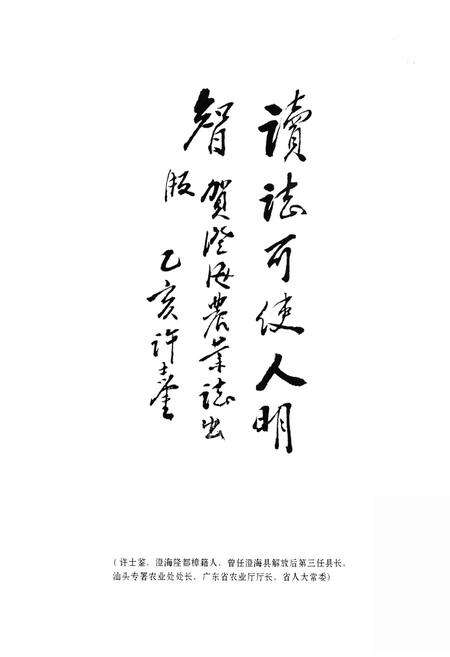 讀誌可使人明
智
賀澄海農業誌出
版
乙亥许士鉴
(许士鉴、澄海隆都樟籍人、曾任澄海县解放后第三任县长、
汕头专署农业处处长、广东省农业厅厅长、省人大常委)